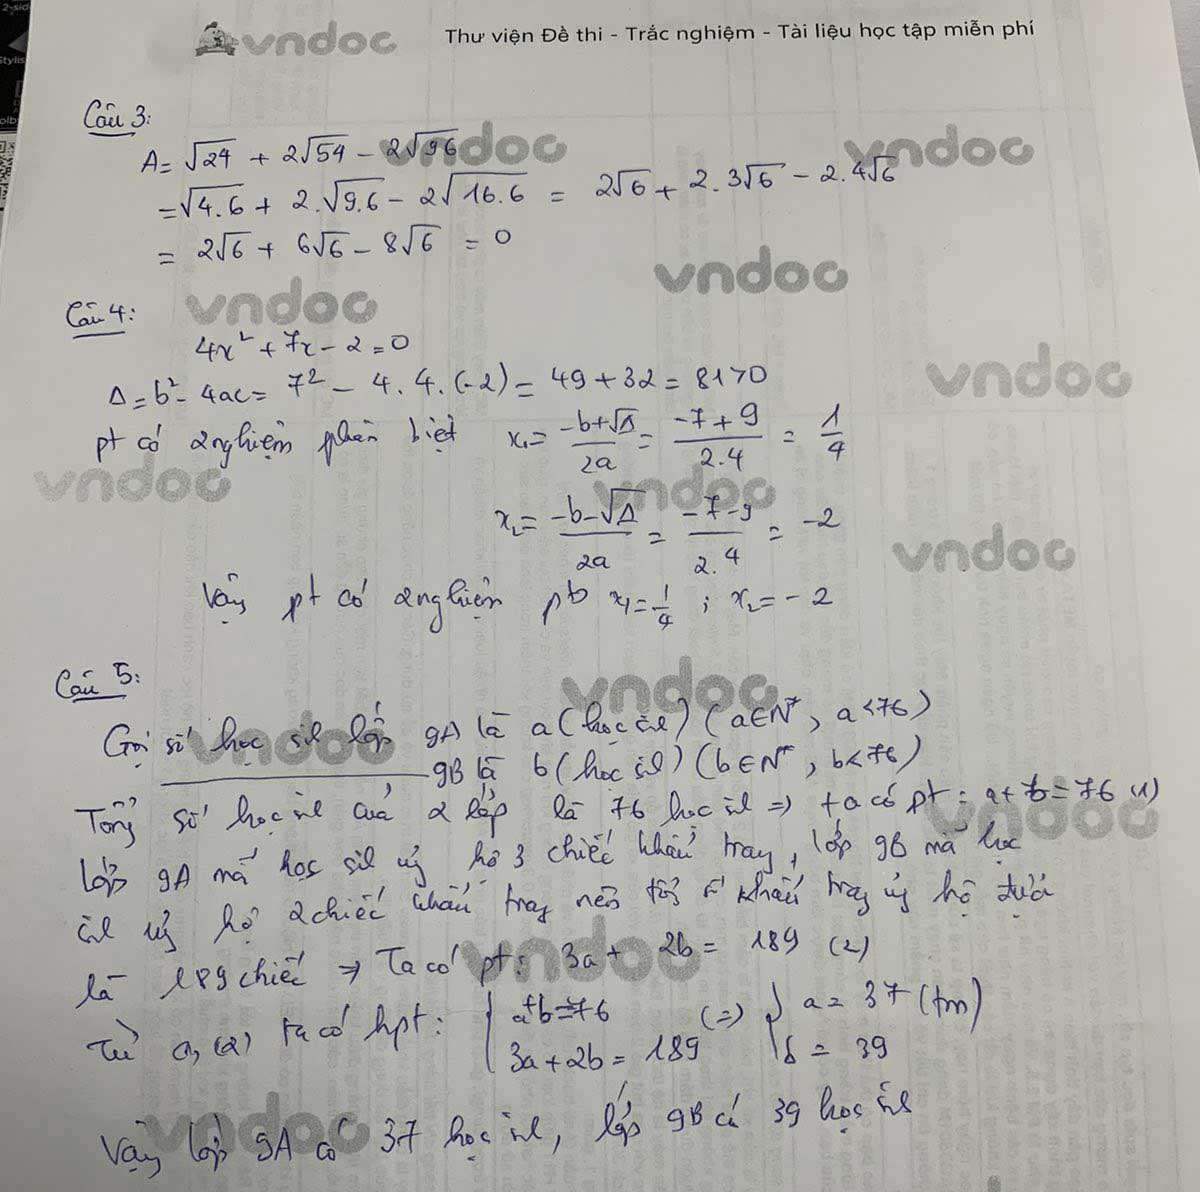 2-sid
Stylis
olb
vndoc
Thư viện Đề thi - Trắc nghiệm - Tài liệu học tập miễn phí
Câu 3:
A = √24 + 2√54 - 2√96
= √4.6 + 2.√9.6 - 2√16.6 = 2√6 + 2.3√6 - 2.4√6
= 2√6 + 6√6 - 8√6 = 0
Câu 4:
4x² + 7x - 2 = 0
Δ = b² - 4ac = 7² - 4.4.(-2) = 49 + 32 = 81 > 0
pt có 2 nghiệm phân biệt x₁ = (-b+√Δ)/2a = (-7+9)/2.4 = 1/4
x₂ = (-b-√Δ)/2a = (-7-9)/2.4 = -2
Vậy pt có 2 nghiệm pb x₁ = 1/4 ; x₂ = -2
Câu 5:
Gọi số học sinh lớp 9A là a (học sinh) (a∈N*, a<76)
9B là b (học sinh) (b∈N*, b<76)
Tổng số học sinh của 2 lớp là 76 học sinh => ta có pt: a+b=76 (1)
Lớp 9A mỗi học sinh ủng hộ 3 chiếc khẩu trang, lớp 9B mỗi học
sinh ủng hộ 2 chiếc khẩu trang nên tổng số khẩu trang ủng hộ được
là 189 chiếc => Ta có pt: 3a + 2b = 189 (2)
Từ (1), (2) ta có hpt: { a+b=76 (=) { a = 37 (tm)
3a+2b = 189 b = 39
Vậy lớp 9A có 37 học sinh, lớp 9B có 39 học sinh